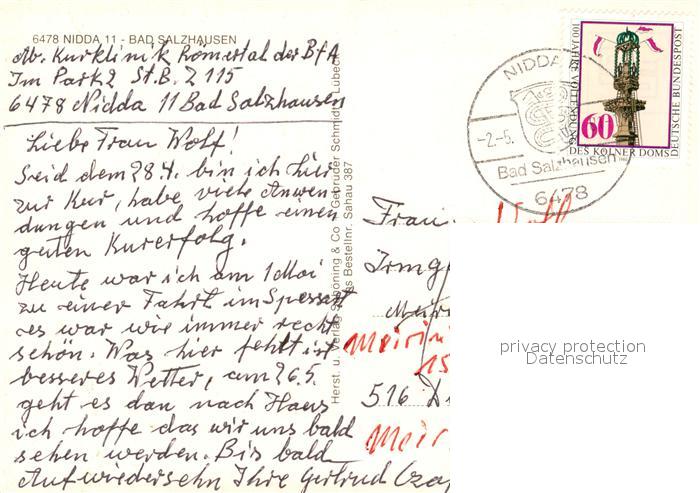 6478 NIDDA 11 - BAD SALZHAUSEN
Ab. Kurklinik Römertal der BfA
Im Park 2 St.B. Z 115
6478 Nidda 11 Bad Salzhausen
Liebe Frau Wolf!
Seid dem 28.4. bin ich hier
zur Kur, habe viele Anwen-
dungen und hoffe einen
guten Kurerfolg.
Heute war ich am 1 Mai
zu einer Fahrt im Spessart
es war wie immer recht
schön. Was hier fehlt ist
besseres Wetter, am 26.5.
geht es dan nach Haus
ich hoffe das wir uns bald
sehen werden. Bis bald
Auf wiedersehn Ihre Gertrud
Herst. u. Verlag Schöning & Co + Gebrüder Schmidt, Lübeck
Bestellnr. Sahau 387
NIDDA
-2.-5.
Bad Salzhausen
6478
100 JAHRE VOLLENDUNG
DES KÖLNER DOMS
DEUTSCHE BUNDESPOST
60
1980
Frau
Irmg
516
privacy protection
Datenschutz